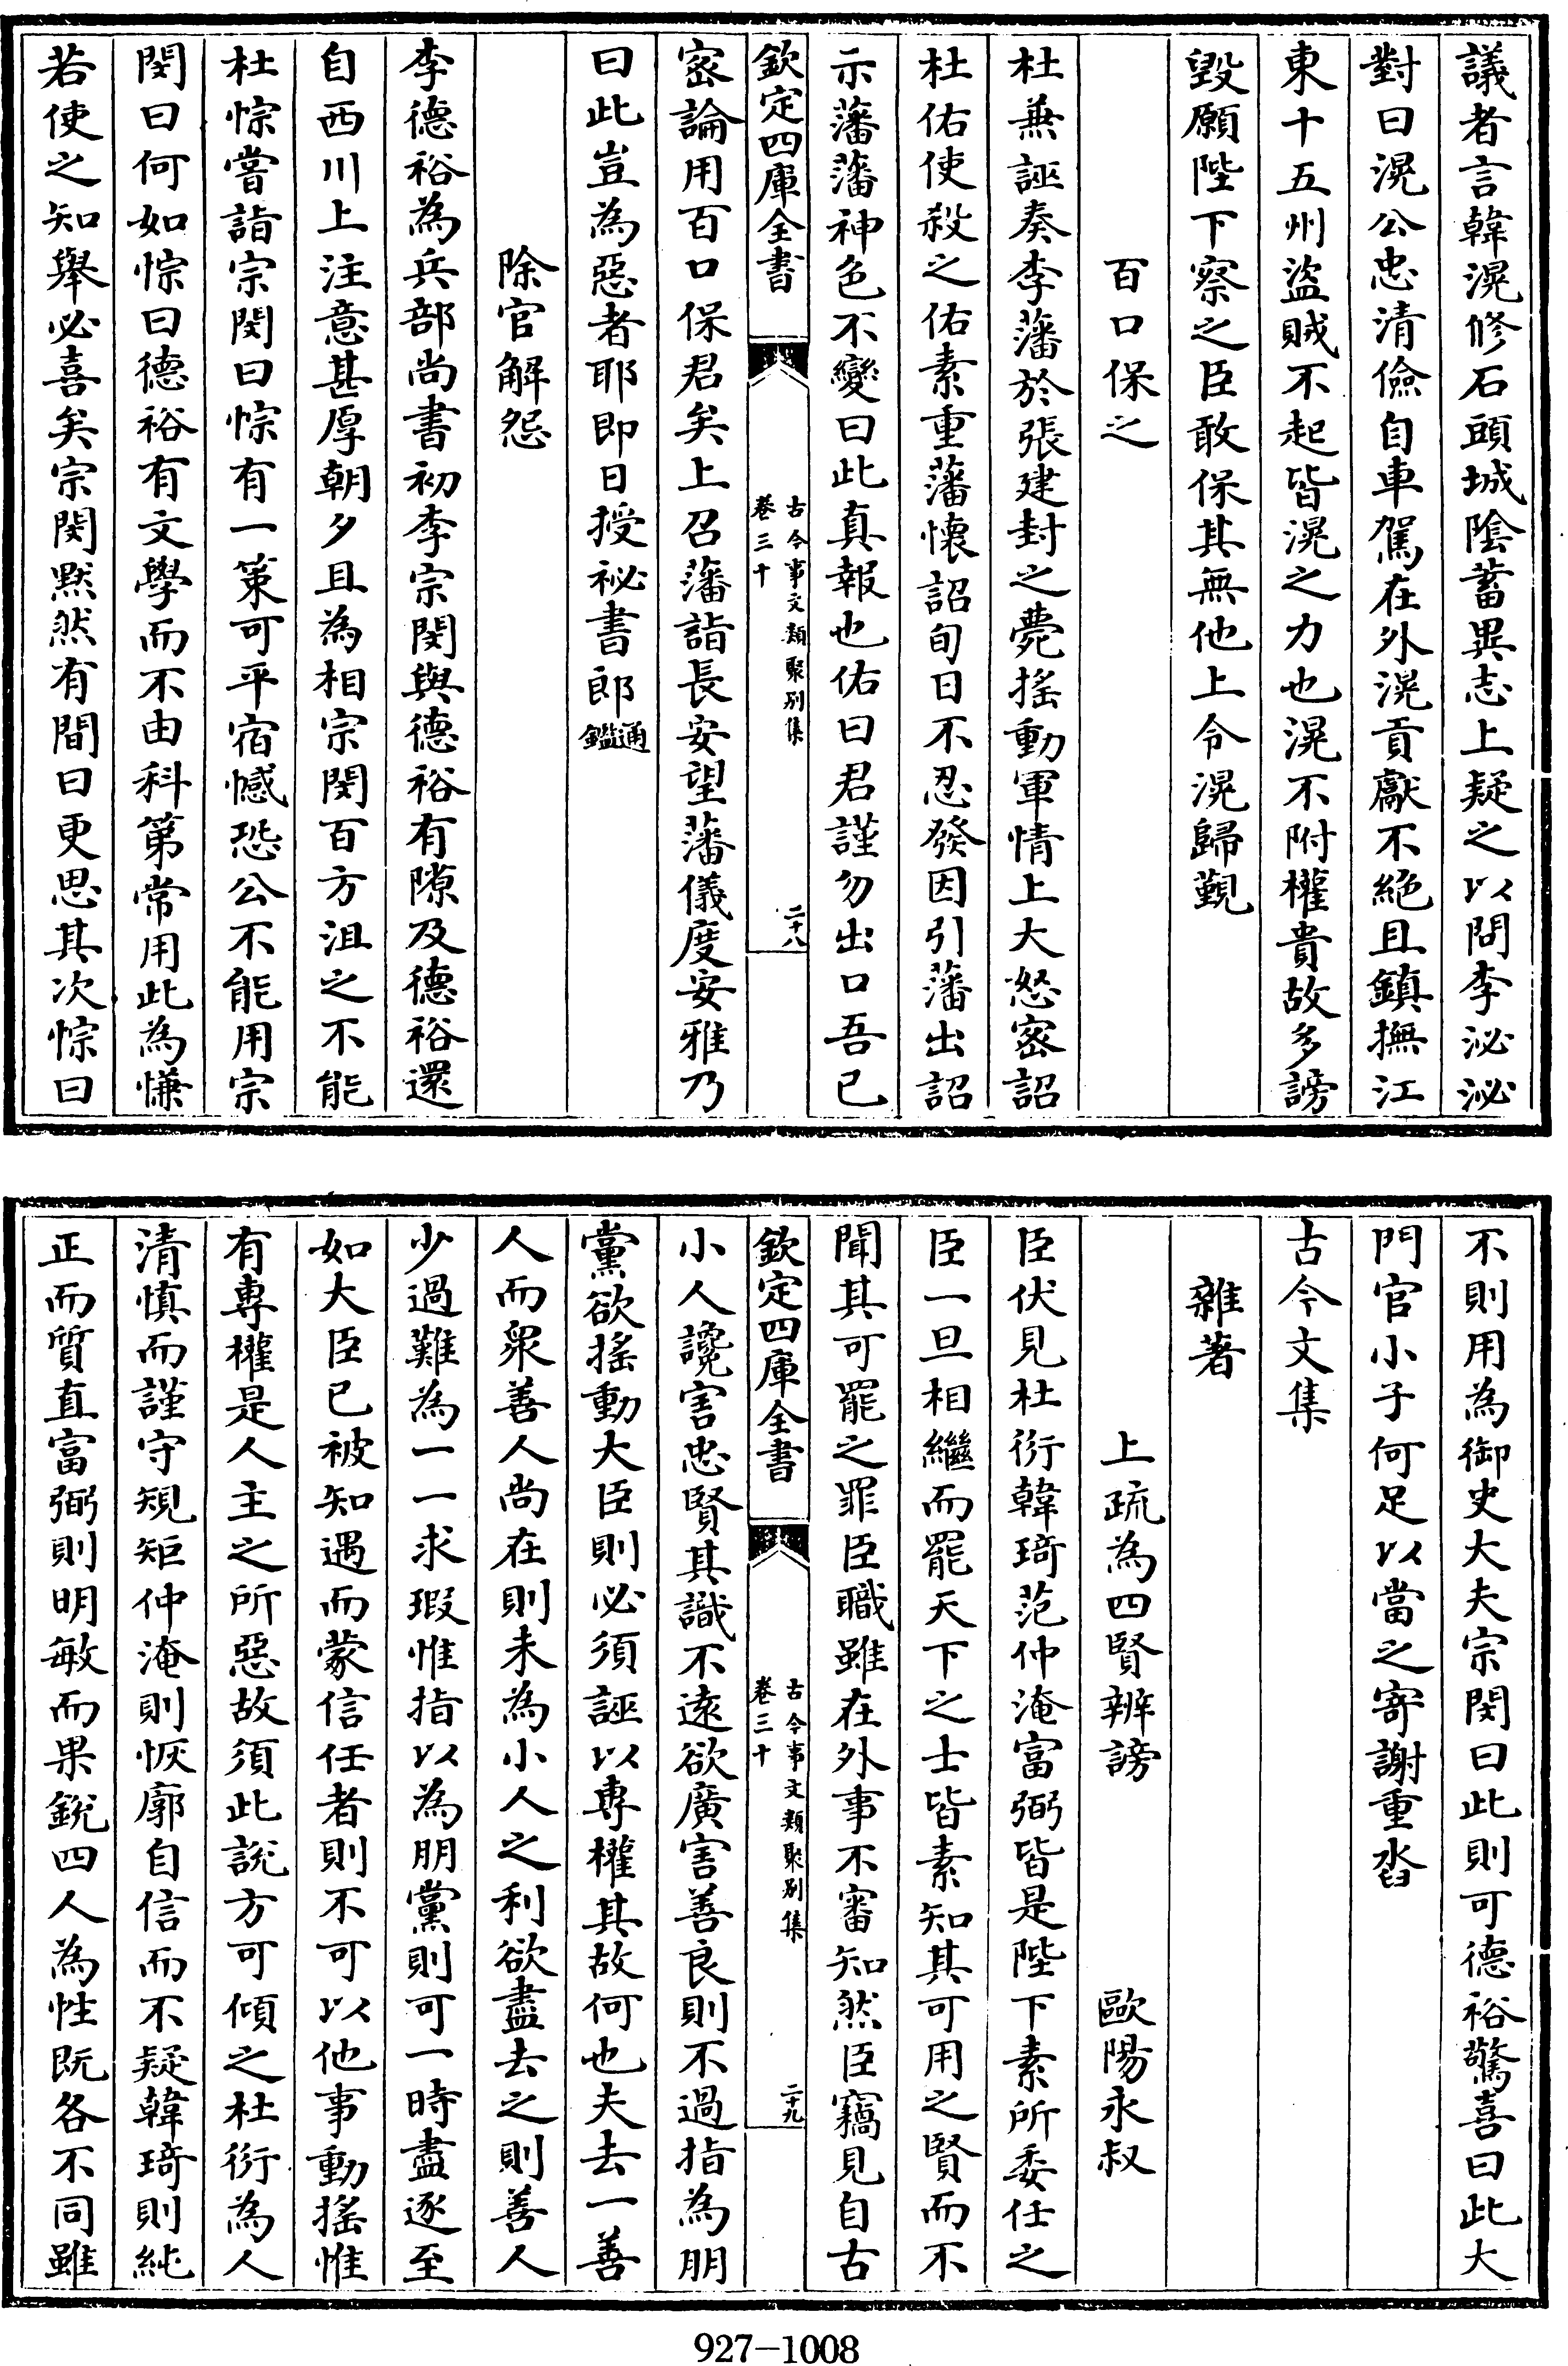 議者言韓滉修石頭城陰蓄異志上疑之以問李泌泌
對曰滉公忠清儉自車駕在外滉貢獻不絶且鎮撫江
東十五州盜賊不起皆滉之力也滉不附權貴故多謗
毀願陛下察之臣敢保其無他上令滉歸覲
百口保之
杜兼誣奏李藩於張建封之薨搖動軍情上大怒密詔
杜佑使殺之佑素重藩懷詔旬日不忍發因引藩出詔
示藩藩神色不變曰此真報也佑曰君謹勿出口吾已
欽定四庫全書
古今事文類聚别集
卷三十
二十八
密論用百口保君矣上召藩詣長安望藩儀度安雅乃
曰此豈為惡者耶即日授祕書郎通鑑
除官解怨
李德裕為兵部尚書初李宗閔與德裕有隙及德裕還
自西川上注意甚厚朝夕且為相宗閔百方沮之不能
杜悰嘗詣宗閔曰悰有一策可平宿憾恐公不能用宗
閔曰何如悰曰德裕有文學而不由科第常用此為慊
若使之知舉必喜矣宗閔黙然有間曰更思其次悰曰
不則用為御史大夫宗閔曰此則可德裕驚喜曰此大
門官小子何足以當之寄謝重沓
古今文集
雜著
上疏為四賢辨謗 歐陽永叔
臣伏見杜衍韓琦范仲淹富弼皆是陛下素所委任之
臣一旦相繼而罷天下之士皆素知其可用之賢而不
聞其可罷之罪臣職雖在外事不審知然臣竊見自古
欽定四庫全書
古今事文類聚别集
卷三十
二十九
小人讒害忠賢其識不遠欲廣害善良則不過指為朋
黨欲搖動大臣則必須誣以專權其故何也夫去一善
人而衆善人尚在則未為小人之利欲盡去之則善人
少過難為一一求瑕惟指以為朋黨則可一時盡逐至
如大臣已被知遇而蒙信任者則不可以他事動搖惟
有專權是人主之所惡故須此說方可傾之杜衍為人
清慎而謹守規矩仲淹則恢廓自信而不疑韓琦則純
正而質直富弼則明敏而果銳四人為性既各不同雖
927-1008